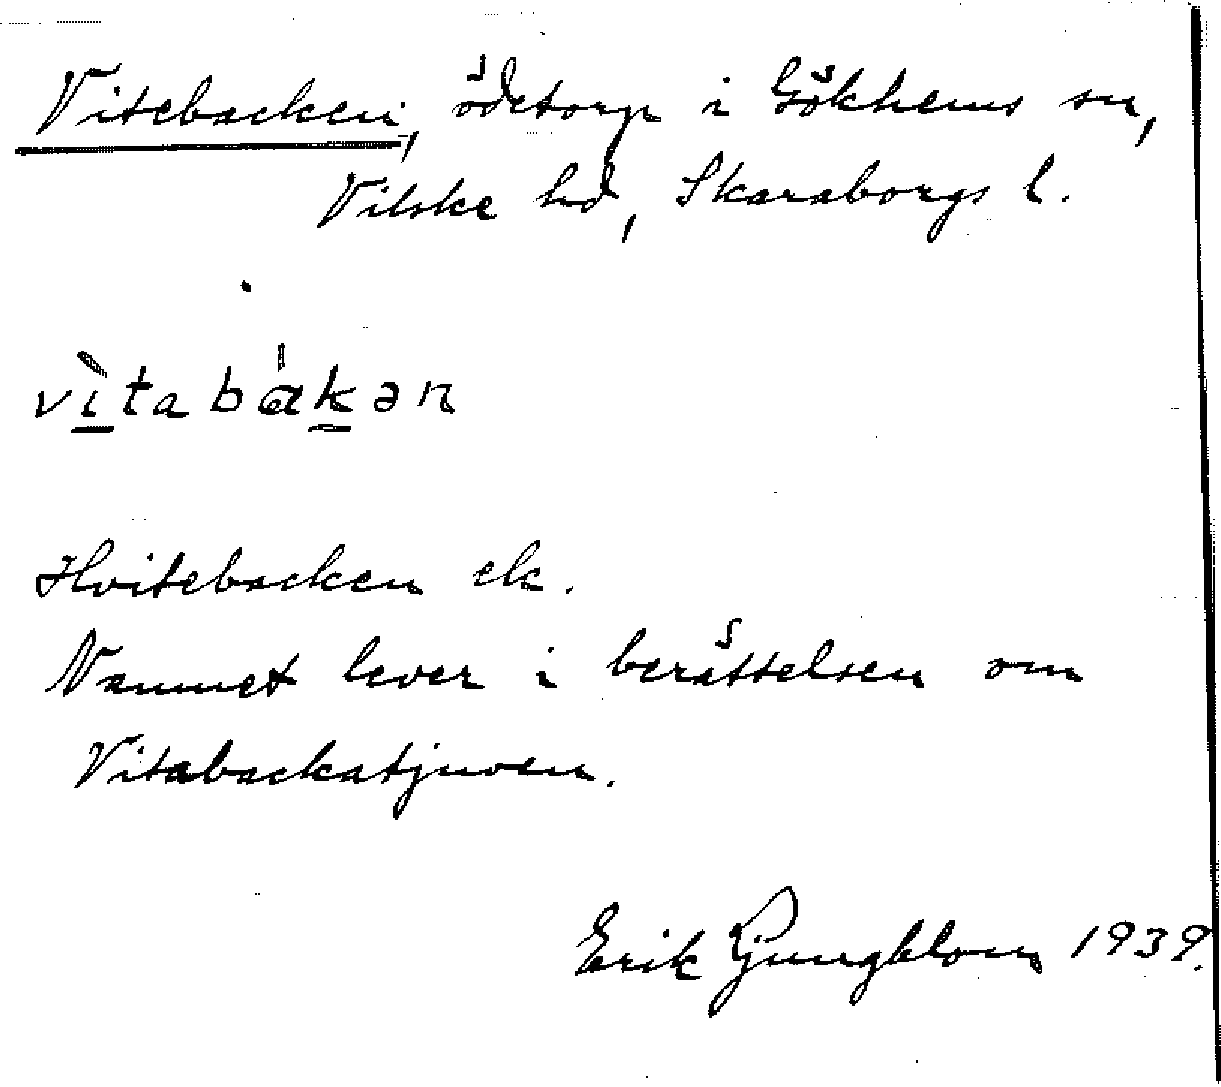 Vitebacken, ödetorp i Gökhems sn,
Vilske hd, Skaraborgs l.
vìtabákən
Hvitebacken ek.
Namnet lever i berättelsen om
Vitabackatjuven.
Erik Ljungblom 1939.